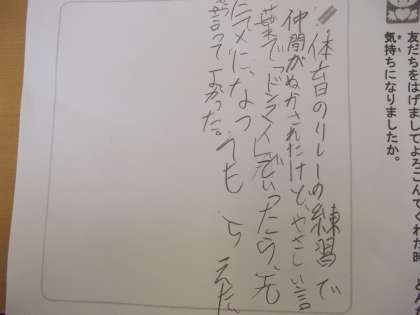 友だちをはげましてよろこんでくれた時、どん
気持ちになりましたか。
体育のリレーの練習で
仲間がぬかされたけど、やさしい言
葉で「ドンマイ」でいったら、元
言ってよかった。